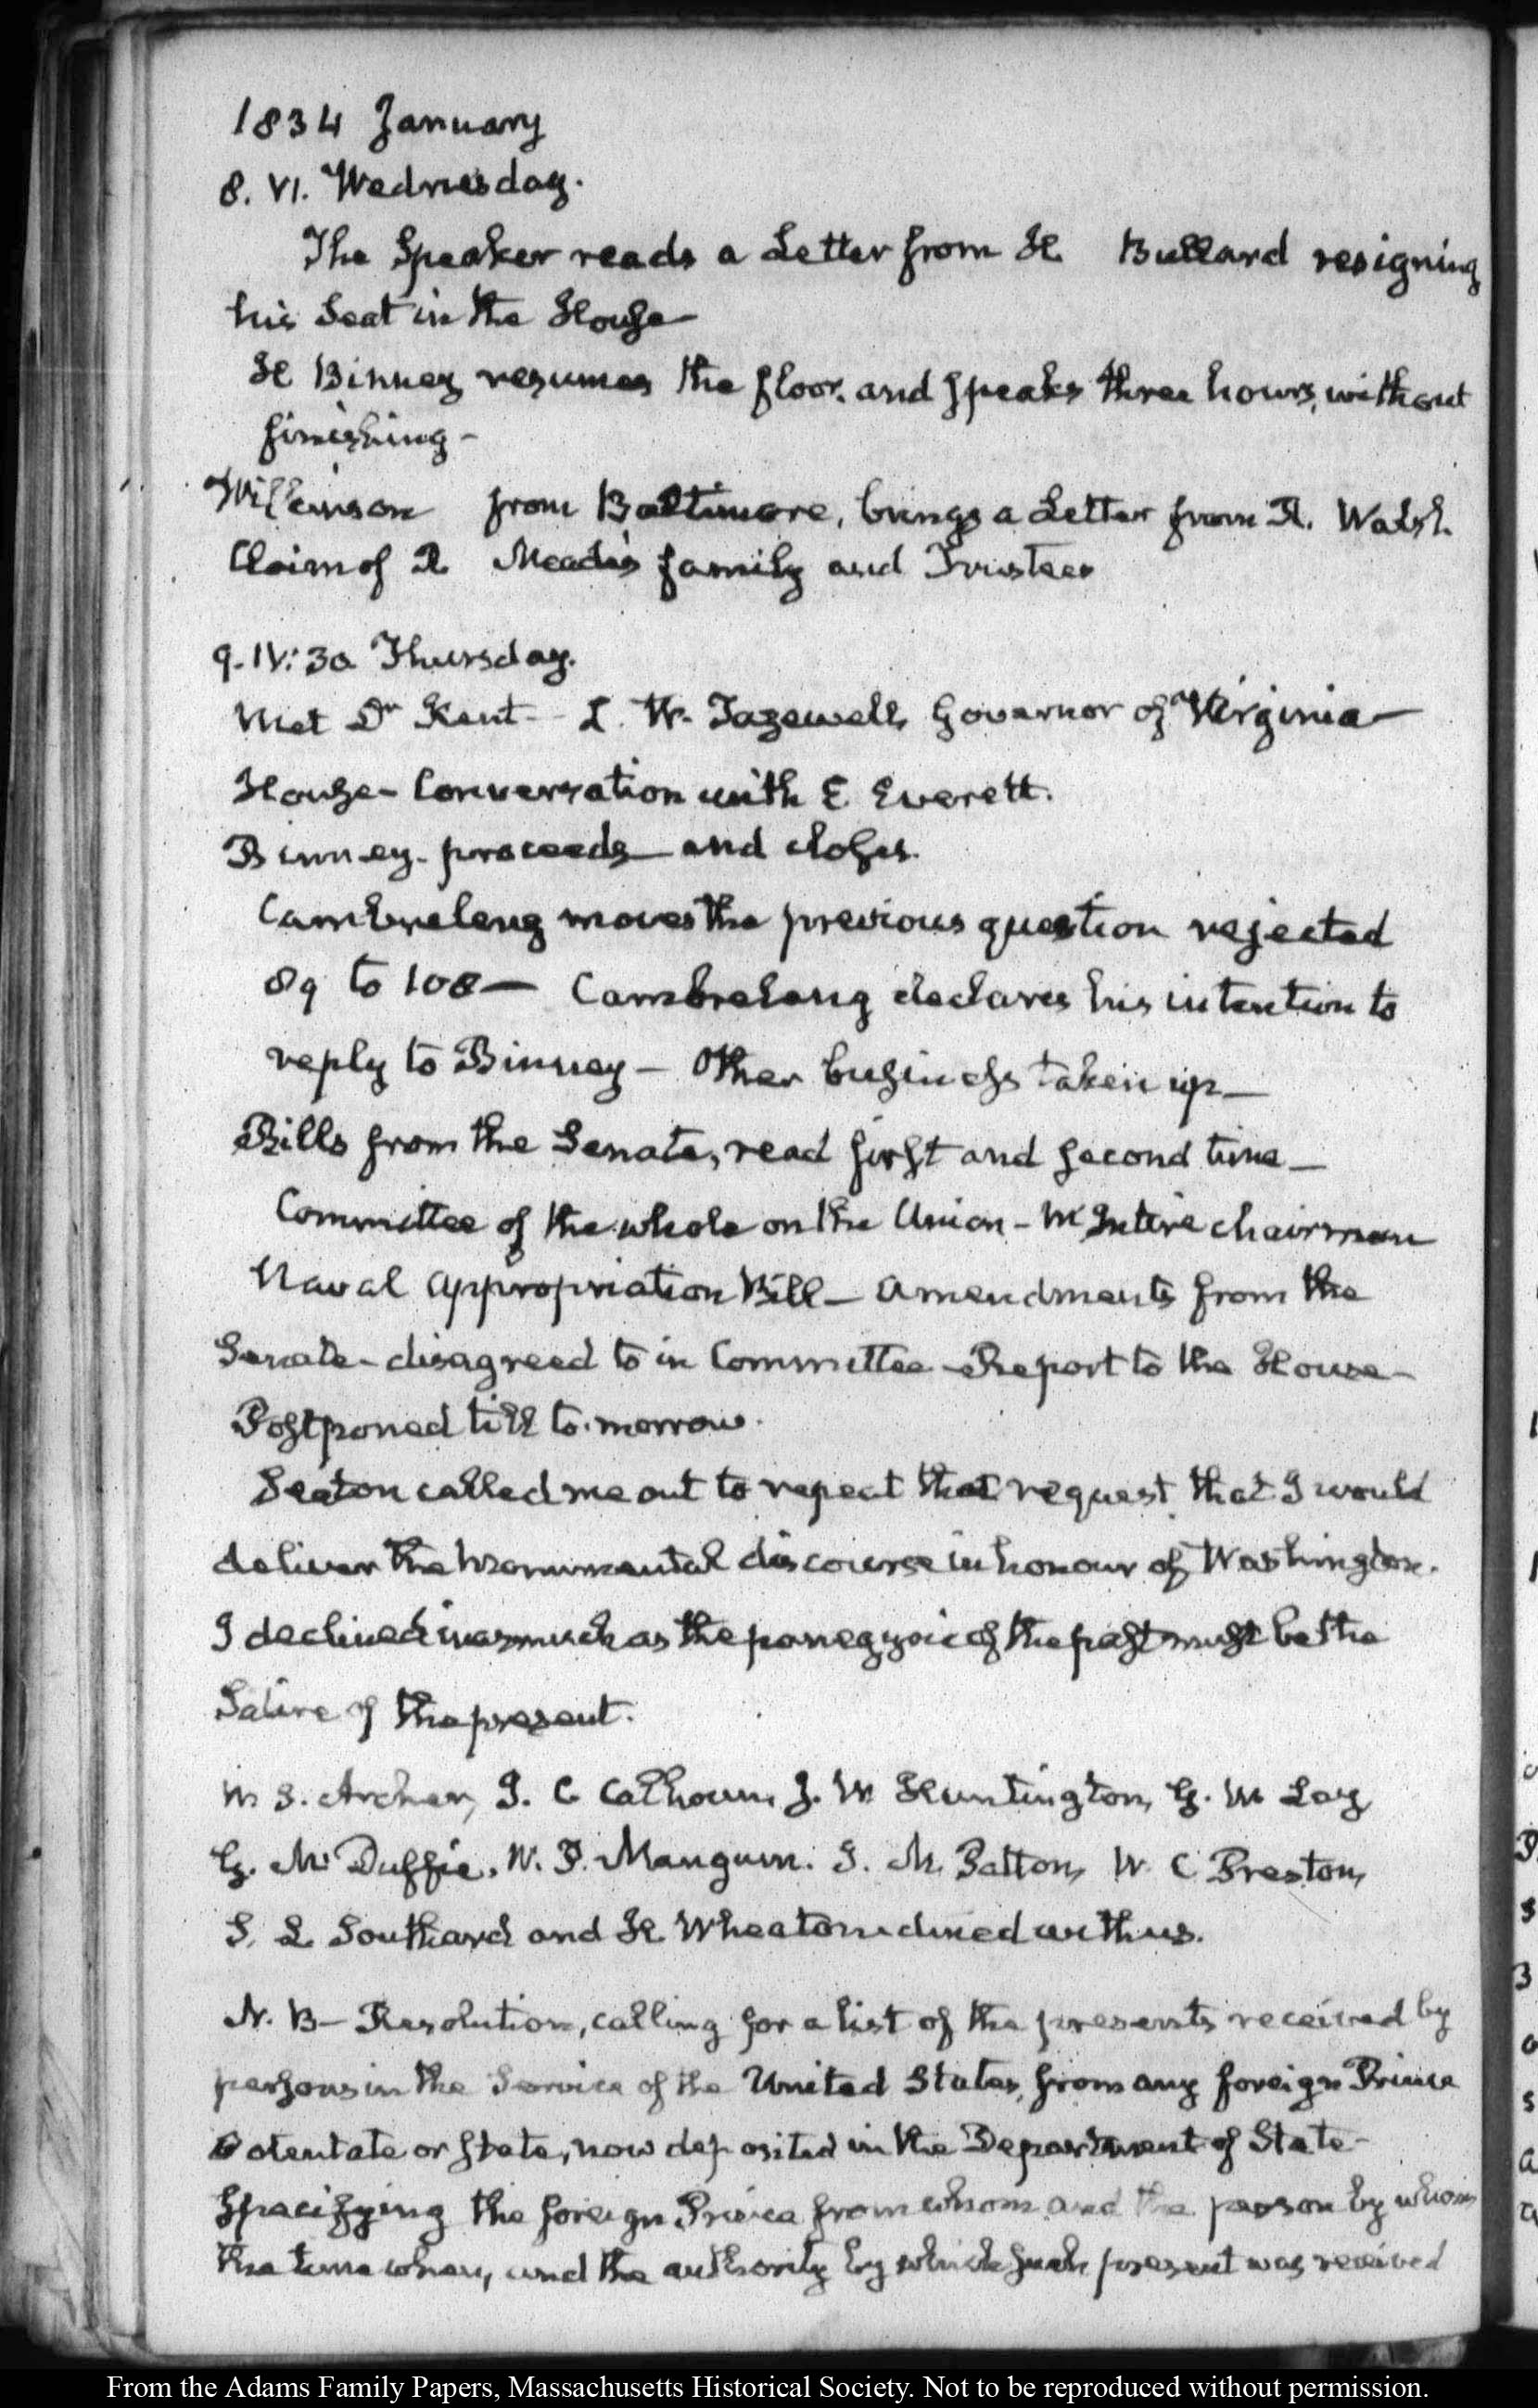 1834 January
8. VI. Wednesday.
The Speaker reads a Letter from H Bullard resigning
his Seat in the House—
H Binney resumes the floor. and speaks three hours, without
finishing—
Wilkinson from Baltimore, brings a Letter from R. Walsh.
Claim of R Meade's family and Trustees
9. IV: 30 Thursday.
Met Dr Kent— L. W. Tazewell, Governor of Virginia—
House— Conversation with E Everett.
Binney— proceeds— and closes.
Cambreleng moves the previous question rejected
89 to 108— Cambreleng declares his intention to
reply to Binney— Other business taken up—
Bills from the Senate, read first and second time—
Committee of the whole on the Union— McIntire chairman
Naval Appropriation Bill— Amendments from the
Senate— disagreed to in Committee— Report to the House—
Postponed till to-morrow.
Seaton called me out to repeat that request that I would
deliver the Monumental discourse in honour of Washington.
I declined inasmuch as the panegyric of the past must be the
Satire of the present.
W. S. Archer, J. C Calhoun, J. W Huntington, G. W Lay
G. McDuffie, W. P. Mangum. J. M. Patton, W. C Preston,
S. L Southard and H Wheaton dined with us.
N. B— Resolution, calling for a list of the presents received by
persons in the Service of the United States, from any foreign Prince
Potentate or State, now deposited in the Department of State—
Specifying the foreign Prince from whom and the person by whom
the time when, and the authority by which such present was received
From the Adams Family Papers, Massachusetts Historical Society. Not to be reproduced without permission.